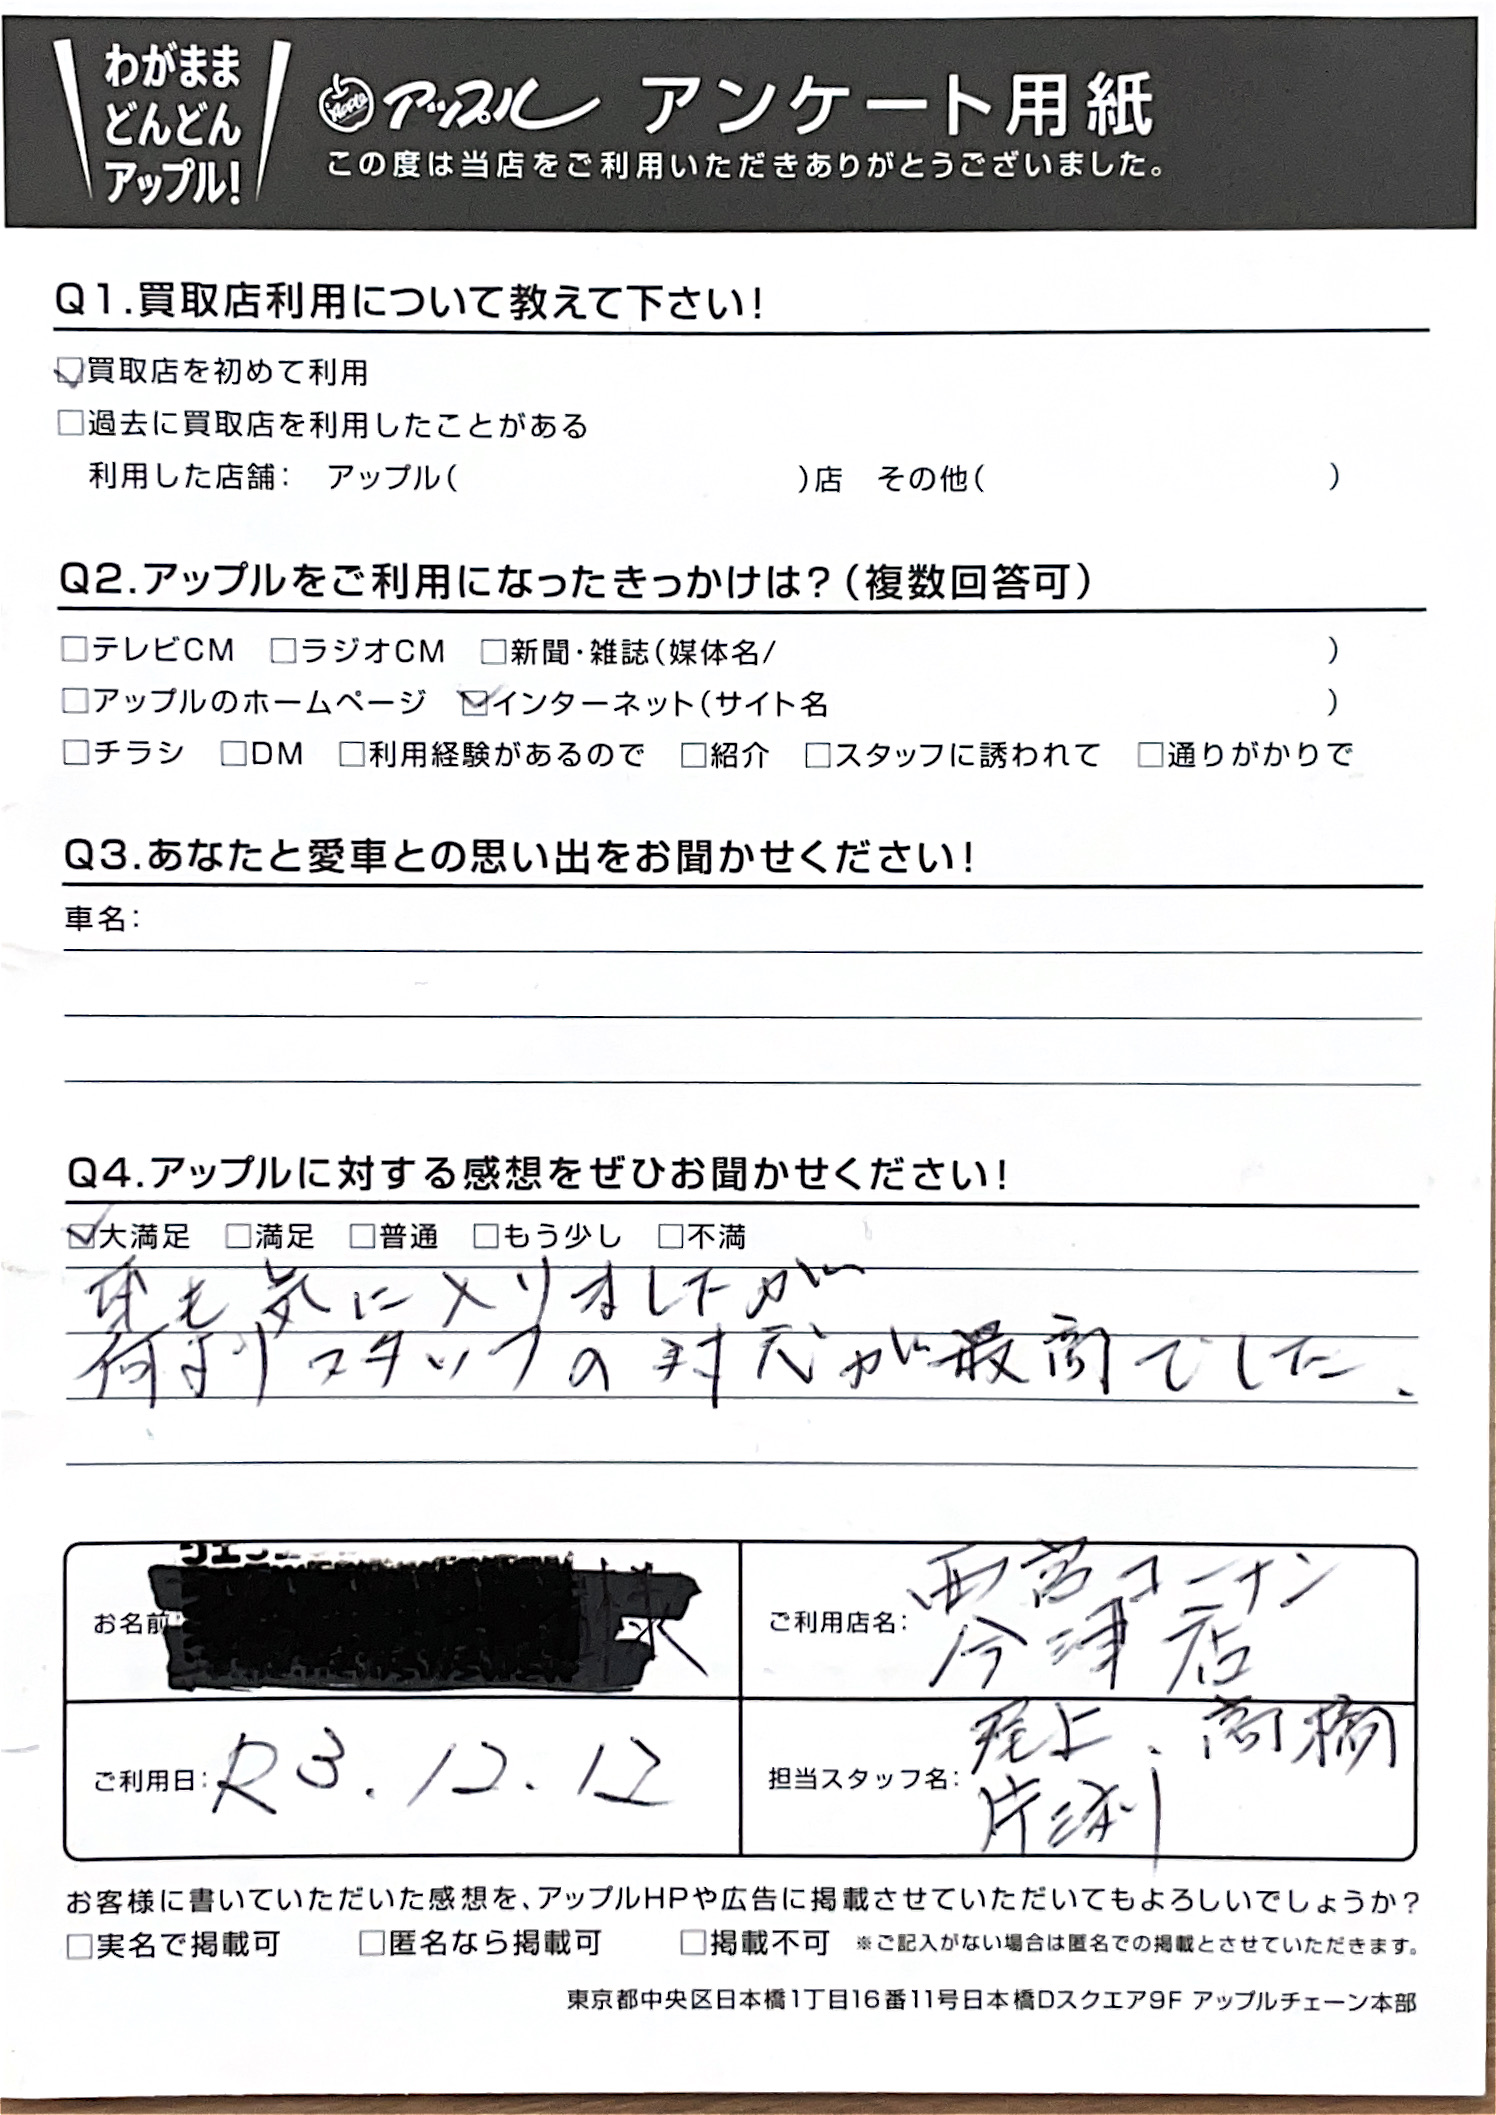 わがまま
どんどん
アップル!
Apple アップル アンケート用紙
この度は当店をご利用いただきありがとうございました。
Q1.買取店利用について教えて下さい!
買取店を初めて利用
□過去に買取店を利用したことがある
利用した店舗: アップル( )店 その他( )
Q2.アップルをご利用になったきっかけは?(複数回答可)
□テレビCM □ラジオCM □新聞・雑誌(媒体名/ )
□アップルのホームページ インターネット(サイト名 )
□チラシ □DM □利用経験があるので □紹介 □スタッフに誘われて □通りがかりで
Q3.あなたと愛車との思い出をお聞かせください!
車名:
Q4.アップルに対する感想をぜひお聞かせください!
大満足 □満足 □普通 □もう少し □不満
車も気に入りましたが
何よりスタッフの対応が最高でした.
お名前 様
ご利用店名: 西宮コーナン
今津店
ご利用日: R3.12.12
担当スタッフ名: 尾上、高橋
片渕
お客様に書いていただいた感想を、アップルHPや広告に掲載させていただいてもよろしいでしょうか?
□実名で掲載可 □匿名なら掲載可 □掲載不可 ※ご記入がない場合は匿名での掲載とさせていただきます。
東京都中央区日本橋1丁目16番11号日本橋Dスクエア9F アップルチェーン本部